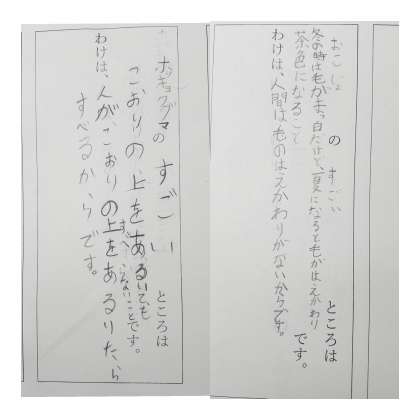 おこじょ の すごい ところは
冬の時は毛がまっ白だけど、夏になると毛がはえかわり
茶色になること です。
わけは、人間は毛のはえかわりがないからです。
ホッキョクグマの すごい ところは
こおりの上をあるいても
すべらないことです。
わけは、人がこおりの上をあるいたら
すべるからです。